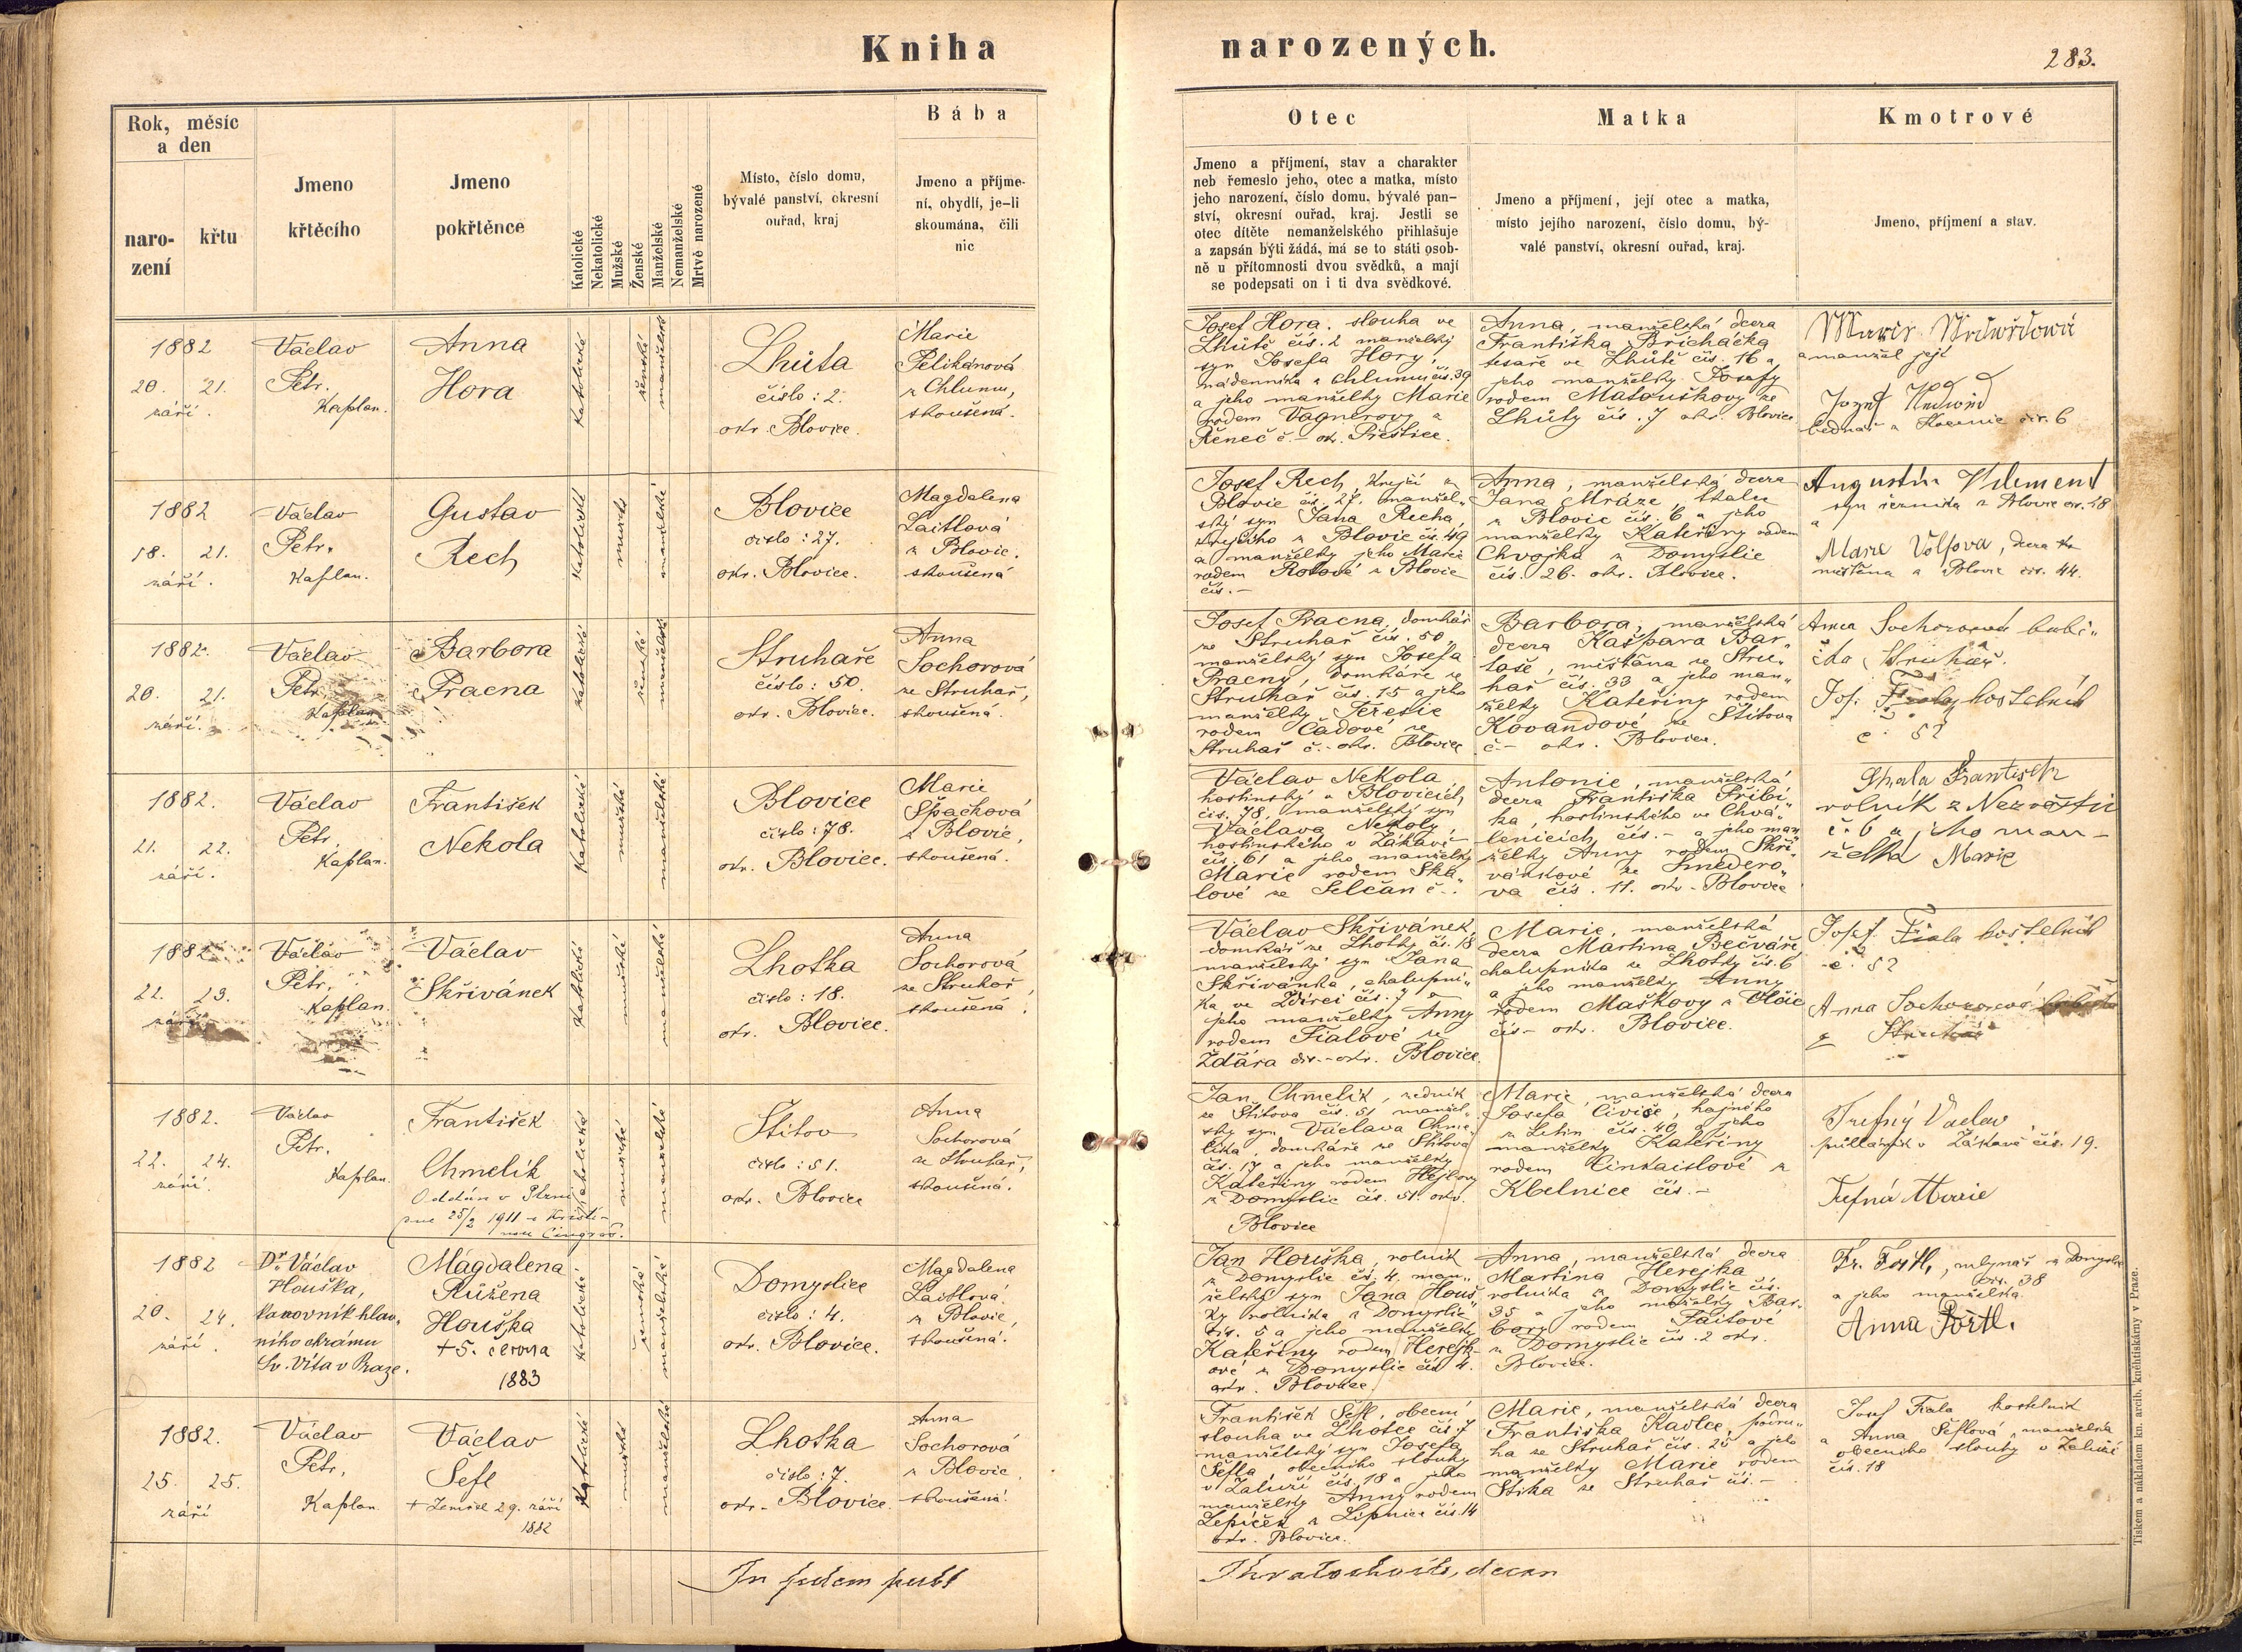 Kniha narozených.
283.
Rok, měsíc
a den
naro-
zení
křtu
Jmeno
křtěcího
Jmeno
pokřtěnce
Katolické
Nekatolické
Mužské
Ženské
Manželské
Nemanželské
Mrtvě narozené
Místo, číslo domu,
bývalé panství, okresní
ouřad, kraj
Bába
Jmeno a příjme-
ní, obydlí, je-li
skoumána, čili
nic
Otec
Jmeno a příjmení, stav a charakter
neb řemeslo jeho, otec a matka, místo
jeho narození, číslo domu, bývalé pan-
ství, okresní ouřad, kraj. Jestli se
otec dítěte nemanželského přihlašuje
a zapsán býti žádá, má se to státi osob-
ně u přítomnosti dvou svědků, a mají
se podepsati on i ti dva svědkové.
Matka
Jmeno a příjmení, její otec a matka,
místo jejího narození, číslo domu, bý-
valé panství, okresní ouřad, kraj.
Kmotrové
Jmeno, příjmení a stav.
1882
20. 21.
září.
Václav
Petr.
Kaplan.
Anna
Hora
katolické
ženské
manželské
Lhůta
číslo: 2.
okr. Blovice.
Marie
Pelikánová
z Chlumu,
zkoušená.
Josef Hora, slouha ve
Lhůtě čís. 2 manželský
syn Josefa Hory,
nádenníka z Chlumu čís. 39
a jeho manželky Marie
rodem Vagnerovy z
Řeneč č. – okr. Přeštice.
Anna, manželská dcera
Františka Břicháčka
tesaře ve Lhůtě čís. 16 a
jeho manželky Josefy
rodem Matouškovy ze
Lhůty čís. 7 okr. Blovice
a manžel její
bednář čís. 6
1882
18. 21.
září.
Václav
Petr.
Kaplan.
Gustav
Rech
katolické
mužské
manželské
Blovice
číslo: 27.
okr. Blovice.
Magdalena
Laitlová
z Blovic.
zkoušená
Josef Rech, krejčí z
Blovic čís. 27. manžel„
ský syn Jana Recha,
krejčího z Blovic čís. 49
a manželky jeho Marie
rodem Rotové z Blovic
čís. –
Anna, manželská dcera
Jana Mráze, tkalce
z Blovic čís. 6 a jeho
manželky Kateřiny rodem
Chvojka z Domyslic
čís. 26. okr. Blovice.
Augustin
syn řezníka z Blovic čís. 28
a
Marie Volfova, dcera
měšťana z Blovic čís. 44.
1882.
20. 21.
září.
Václav
Petr
Kaplan
Barbora
Pracna
katolické
ženské
manželské
Struhaře
číslo: 50.
okr. Blovice.
Anna
Sochorová
ze Struhař,
zkoušená.
Josef Pracna, domkář
ze Struhař čís. 50,
manželský syn Josefa
Pracny, domkáře ze
Struhař čís. 15 a jeho
manželky Terezie
rodem Čadové ze
Struhař č. – okr. Blovice
Barbora, manželská
dcera Kašpara Bar„
taše, měšťana ze Stru„
hař čís. 33 a jeho man„
želky Kateřiny rodem
Kovandové ze Štítova
č – okr. Blovice.
Anna Sochorová babi„
čka Struhař.
Jos. Fiala kostelník
č. 52
1882.
21. 22.
září.
Václav
Petr,
Kaplan.
František
Nekola
katolické
mužské
manželské
Blovice
číslo: 78.
okr. Blovice.
Marie
Špačková
z Blovic,
zkoušená.
Václav Nekola,
hostinský v Blovicích,
čís. 78, manželský syn
Václava Nekoly,
hostinského v Žákavě
čís. 61 a jeho manželky
Marie rodem Ska„
lové ze Selčan č. –
Antonie, manželská
dcera Františka Přibi„
ka, hostinského ve Chvá„
lenicích, čís. – a jeho man„
želky Anny rodem Skři„
vánkové ze Smedero„
va čís. 11. okr. Blovice
František
rolník z Nezvěstic
č. 6 a jeho man-
želka Marie
1882
22. 23.
září
Václav
Petr,
Kaplan
Václav
Skřivánek
katolické
mužské
manželské
Lhotka
číslo: 18.
okr. Blovice.
Anna
Sochorová
ze Struhař,
zkoušená.
Václav Skřivánek,
domkář ze Lhotky čís. 18
manželský syn Jana
Skřivánka, chalupní„
ka ve Ždírci čís. 7 a
jeho manželky Anny
rodem Fialové ze
Ždára čís. – okr. Blovice.
Marie, manželská
dcera Martina Bečváře
chalupníka ze Lhotky čís. 6
a jeho manželky Anny
rodem Maškovy z Vlčic
čís. – okr. Blovice.
Josef Fiala kostelník
č. 52
Anna Sochorová
z Struhař
1882.
22. 24.
září.
Václav
Petr.
Kaplan.
František
Chmelík
Oddán v Plzni
dne 25/2 1911 s Kristi-
nou
katolické
mužské
manželské
Štítov
číslo: 51.
okr. Blovice
Anna
Sochorová
ze Struhař,
zkoušená.
Jan Chmelík, zedník
ze Štítova čís. 51 manžel„
ský syn Václava Chme„
líka, domkáře ze Štítova
čís. 17 a jeho manželky
Kateřiny rodem Hejlovy
z Domyslic čís. 51. okr.
Blovice
Marie, manželská dcera
Josefa Čiviše, hajného
z Letin čís. 40 a jeho
manželky Kateřiny
rodem z
Kbelnice čís. –
Trefný Vaclav
půlláník v Žákavě čís. 19.
Trefná Marie
1882
20. 24.
září.
Dr. Václav
Houška,
kanovník hlav„
ního chrámu
Sv. Víta v Praze.
Magdalena
Růžena
Houška
+ 5. června
1883
katolické
ženské
manželské
Domyslice
číslo: 4.
okr. Blovice.
Magdalena
Laitlová
z Blovic,
zkoušená.
Jan Houška, rolník
z Domyslic čís. 4, man„
želský syn Jana Houš„
ky rolníka z Domyslic
čís. 5 a jeho manželky
Kateřiny rodem Herejk-
ové z Domyslic čís. 4.
okr. Blovice.
Anna, manželská dcera
Martina Herejka
rolníka z Domyslic čís.
35 a jeho manželky Bar„
bory rodem Faitové
z Domyslic čís. 2 okr.
Blovice.
Fr. mlynář z Domyslic
čís. 38
a jeho manželka.
Anna
1882.
25. 25.
září
Václav
Petr,
Kaplan
Václav
Šefl
+ Zemřel 29. září
1882
katolické
mužské
manželské
Lhotka
číslo: 7.
okr. Blovice.
Anna
Sochorová
z Blovic,
zkoušená.
František Šefl, obecní
slouha ve Lhotce čís. 7
manželský syn Josefa
Šefla, obecního slouhy
v Zaluží čís. 18 a jeho
manželky Anny rodem
Lepíček z Lipnice čís. 14
okr. Blovice.
Marie, manželská dcera
Františka Kavlce, podru„
ha ze Struhař čís. 25 a jeho
manželky Marie rodem
Štika ze Struhař čís. –
Josef Fiala kostelník
a Anna Šeflová, manželka
obecního slouhy v Zaluží
čís. 18
In fidem
decan
Tiskem a nákladem kn. arcib. knéhtiskárny v Praze.